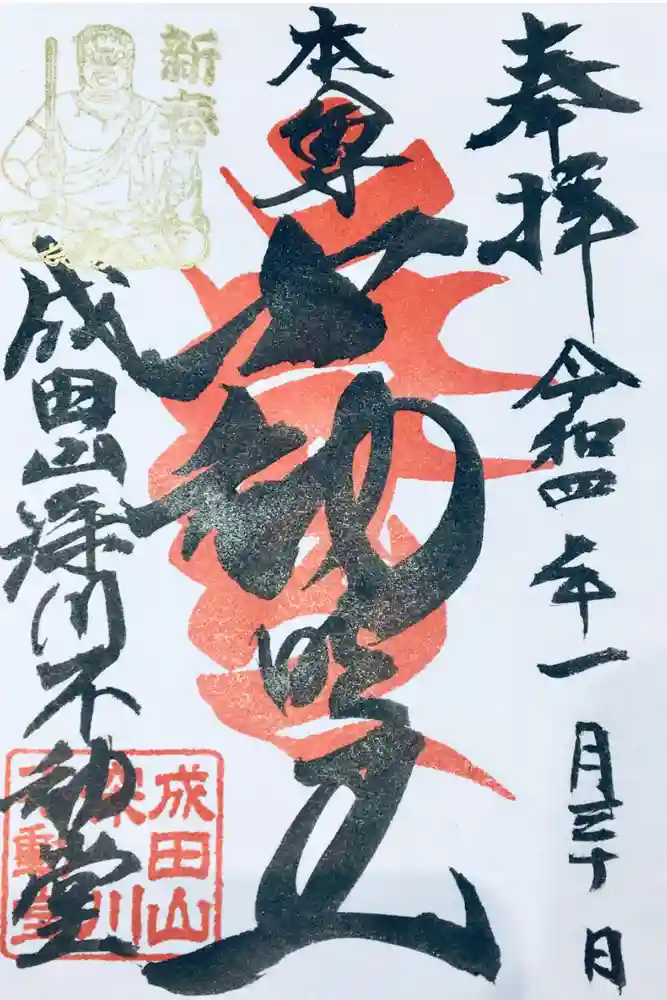 奉拝
令和四年一月三十日
本尊
不動明王
新春
成田山深川不動堂
成田山
深川
不動堂